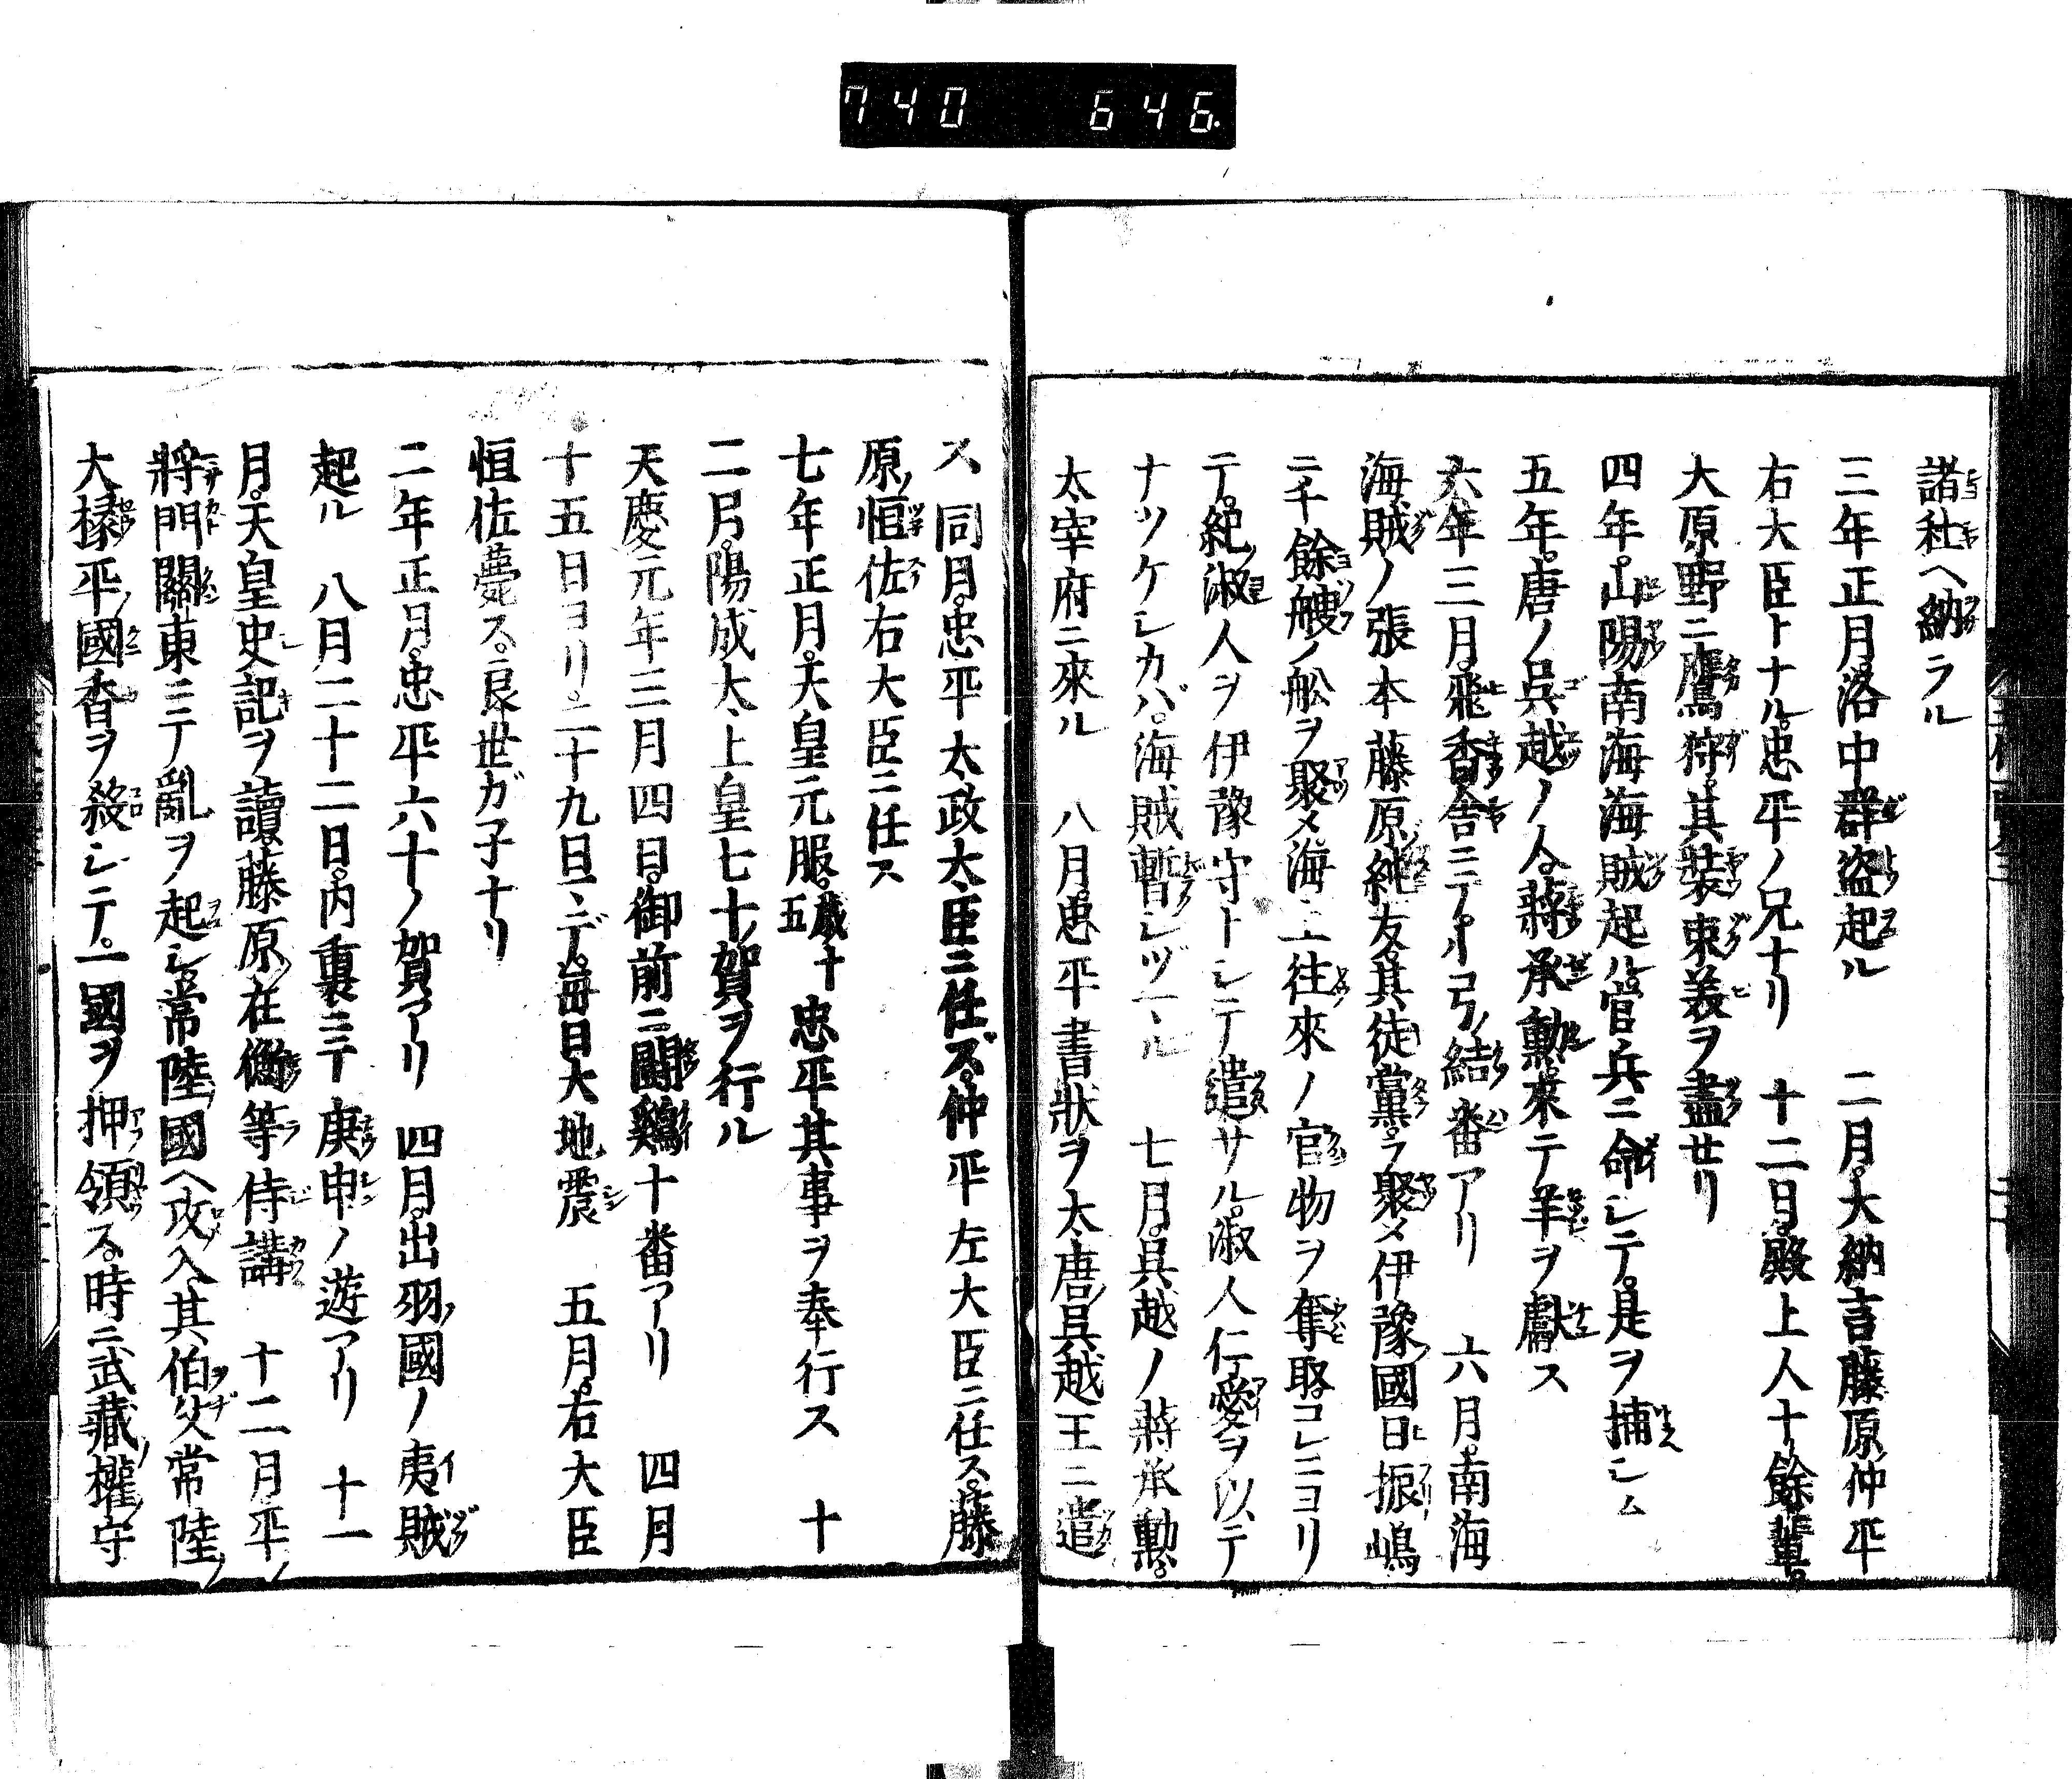 740 646.
諸社ヘ納ラル
三年正月洛中群盗起ル 二月。大納言藤原仲平
右大臣トナル。忠平ノ兄ナリ 十二日。殿上人十餘輩。
大原野ニ鷹狩。其装束義ヲ盡セリ
四年。山陽南海海賊起ル。官兵ニ命シテ。是ヲ捕シム
五年。唐ノ呉越ノ人。蒋承勳來テ羊ヲ獻ス
六年三月。飛香舎ニテ。小弓ノ結番アリ 六月。南海
海賊ノ張本藤原純友。其徒黨ヲ聚メ伊豫國日振嶋
ニ千餘艘ノ舩ヲ聚メ。海上往來ノ官物ヲ奪取。コレニヨリ
テ。紀淑人ヲ伊豫守トシテ遣サル。淑人仁愛ヲ以テ
ナツケシカバ。海賊暫シヅマル 七月。呉越ノ蒋承勳。
太宰府ニ來ル 八月。忠平書狀ヲ太唐呉越王ニ遣
ス 同月。忠平太政大臣ニ任ズ。仲平左大臣ニ任ス。藤
原恒佐右大臣ニ任ス
七年正月。天皇元服。十五歳 忠平其事ヲ奉行ス 十
二月。陽成太上皇七十賀ヲ行ル
天慶元年三月四日。御前ニ鬪鷄十番アリ 四月
十五日ヨリ。二十九日マデ。毎日大地震 五月。右大臣
恒佐薨ス。良世ガ子ナリ
二年正月。忠平六十ノ賀アリ 四月。出羽國ノ夷賊
起ル 八月二十二日。内裏ニテ庚申ノ遊アリ 十一
月。天皇史記ヲ讀。藤原在衡等侍講 十二月平ノ
將門關東ニテ亂ヲ起シ。常陸國ヘ攻入。其伯父常陸ノ
大掾平國香ヲ殺シテ。一國ヲ押領ス。時ニ武藏權守